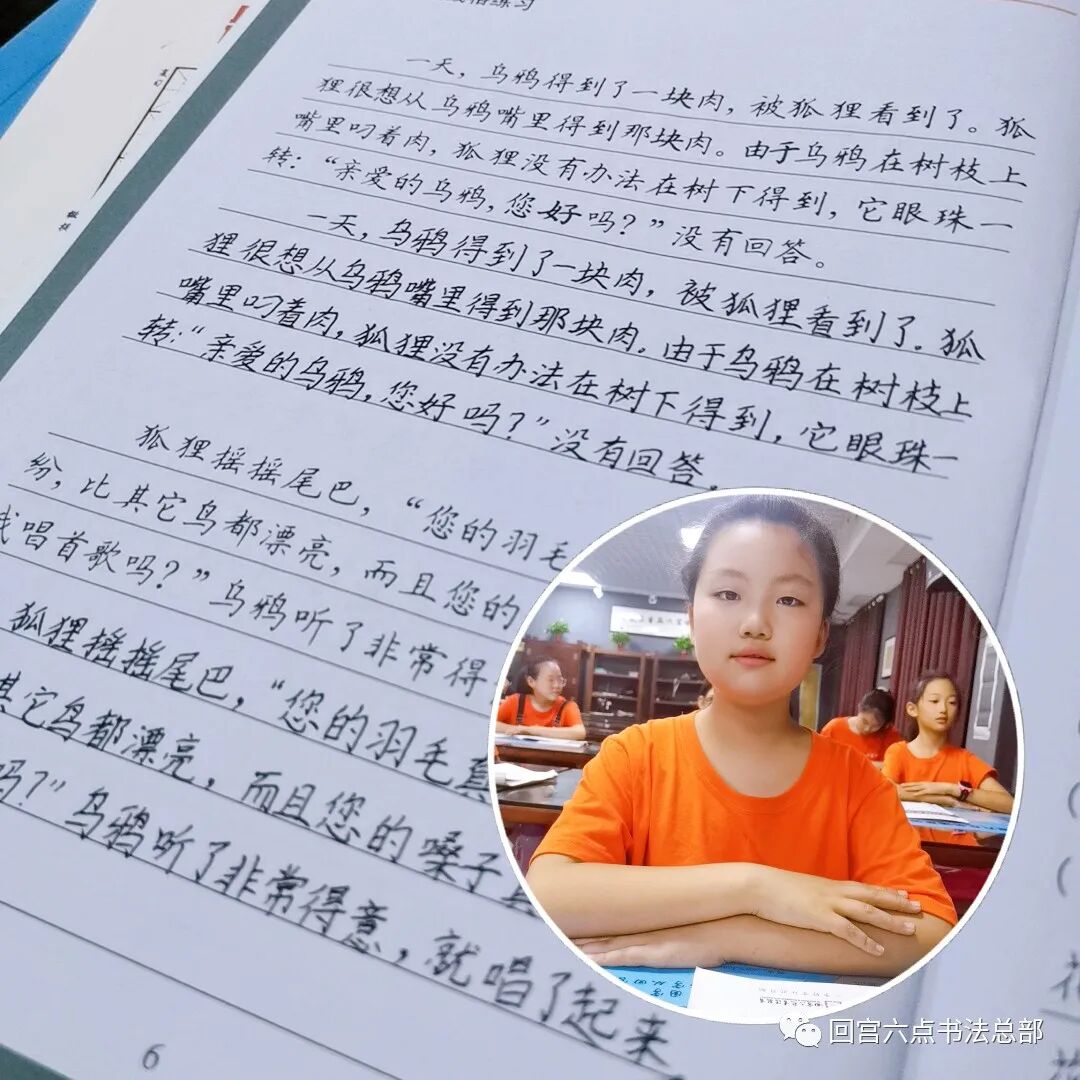 一天，乌鸦得到了一块肉，被狐狸看到了。狐
狸很想从乌鸦嘴里得到那块肉。由于乌鸦在树枝上
嘴里叼着肉，狐狸没有办法在树下得到，它眼珠一
转：“亲爱的乌鸦，您好吗？”没有回答。
一天，乌鸦得到了一块肉，被狐狸看到了。狐
狸很想从乌鸦嘴里得到那块肉。由于乌鸦在树枝上
嘴里叼着肉，狐狸没有办法在树下得到，它眼珠一
转：“亲爱的乌鸦，您好吗？”没有回答。
狐狸摇摇尾巴，“您的羽毛
纷，比其它鸟都漂亮，而且您的
我唱首歌吗？”乌鸦听了非常得
狐狸摇摇尾巴，“您的羽毛真
其它鸟都漂亮，而且您的嗓子
吗？”乌鸦听了非常得意，就唱了起来
6
回宫六点书法总部